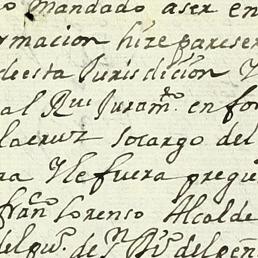 o mandado aser en
ormacion hize pareser
deesta Jurisdicion Y
al Rui Juramto. en for
lacruz socargo del
na Y lefuera pregu
franco Lorenso Alcalde
del pue. de Sn.